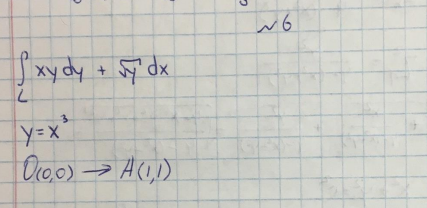 №6
∫ xy dy + √y dx
L
y=x³
O(0,0) → A(1,1)